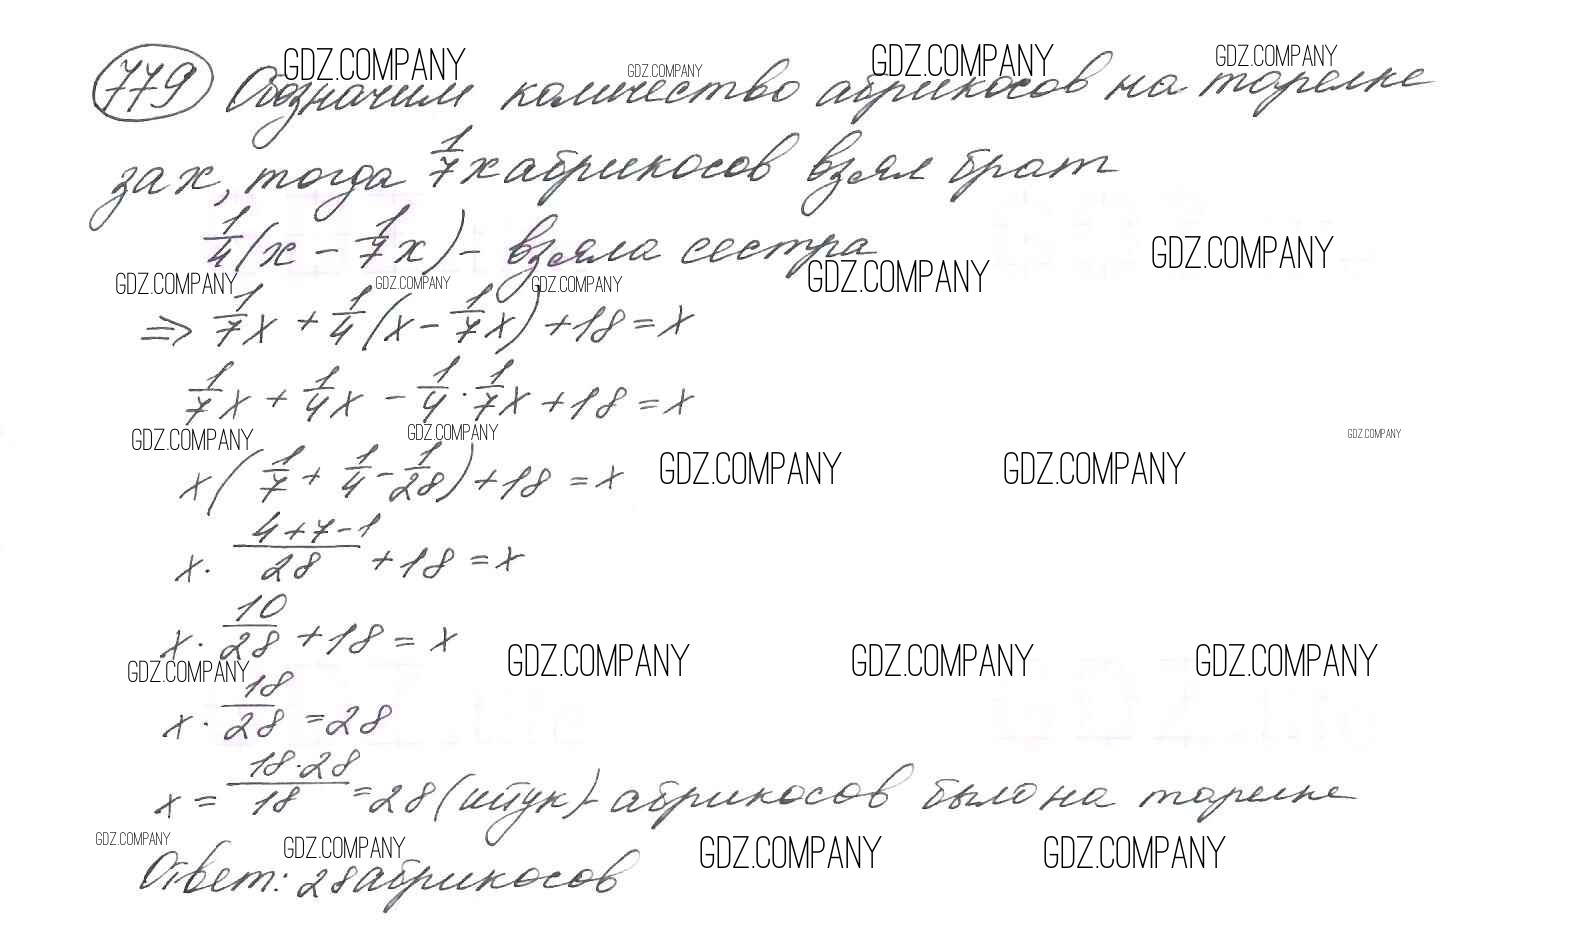 779 Обозначим количество абрикосов на тарелке
за x, тогда 1/7 x абрикосов взял брат
1/4 (x - 1/7 x) - взяла сестра
⇒ 1/7 x + 1/4 (x - 1/7 x) + 18 = x
1/7 x + 1/4 x - 1/4 · 1/7 x + 18 = x
x (1/7 + 1/4 - 1/28) + 18 = x
x · (4+7-1)/28 + 18 = x
x · 10/28 + 18 = x
x · 18/28 = 28
x = (18·28)/18 = 28 (штук) - абрикосов было на тарелке
Ответ: 28 абрикосов
GDZ.COMPANY GDZ.COMPANY GDZ.COMPANY GDZ.COMPANY
GDZ.COMPANY GDZ.COMPANY GDZ.COMPANY GDZ.COMPANY GDZ.COMPANY
GDZ.COMPANY GDZ.COMPANY GDZ.COMPANY GDZ.COMPANY GDZ.COMPANY
GDZ.COMPANY GDZ.COMPANY GDZ.COMPANY GDZ.COMPANY
GDZ.COMPANY GDZ.COMPANY GDZ.COMPANY GDZ.COMPANY